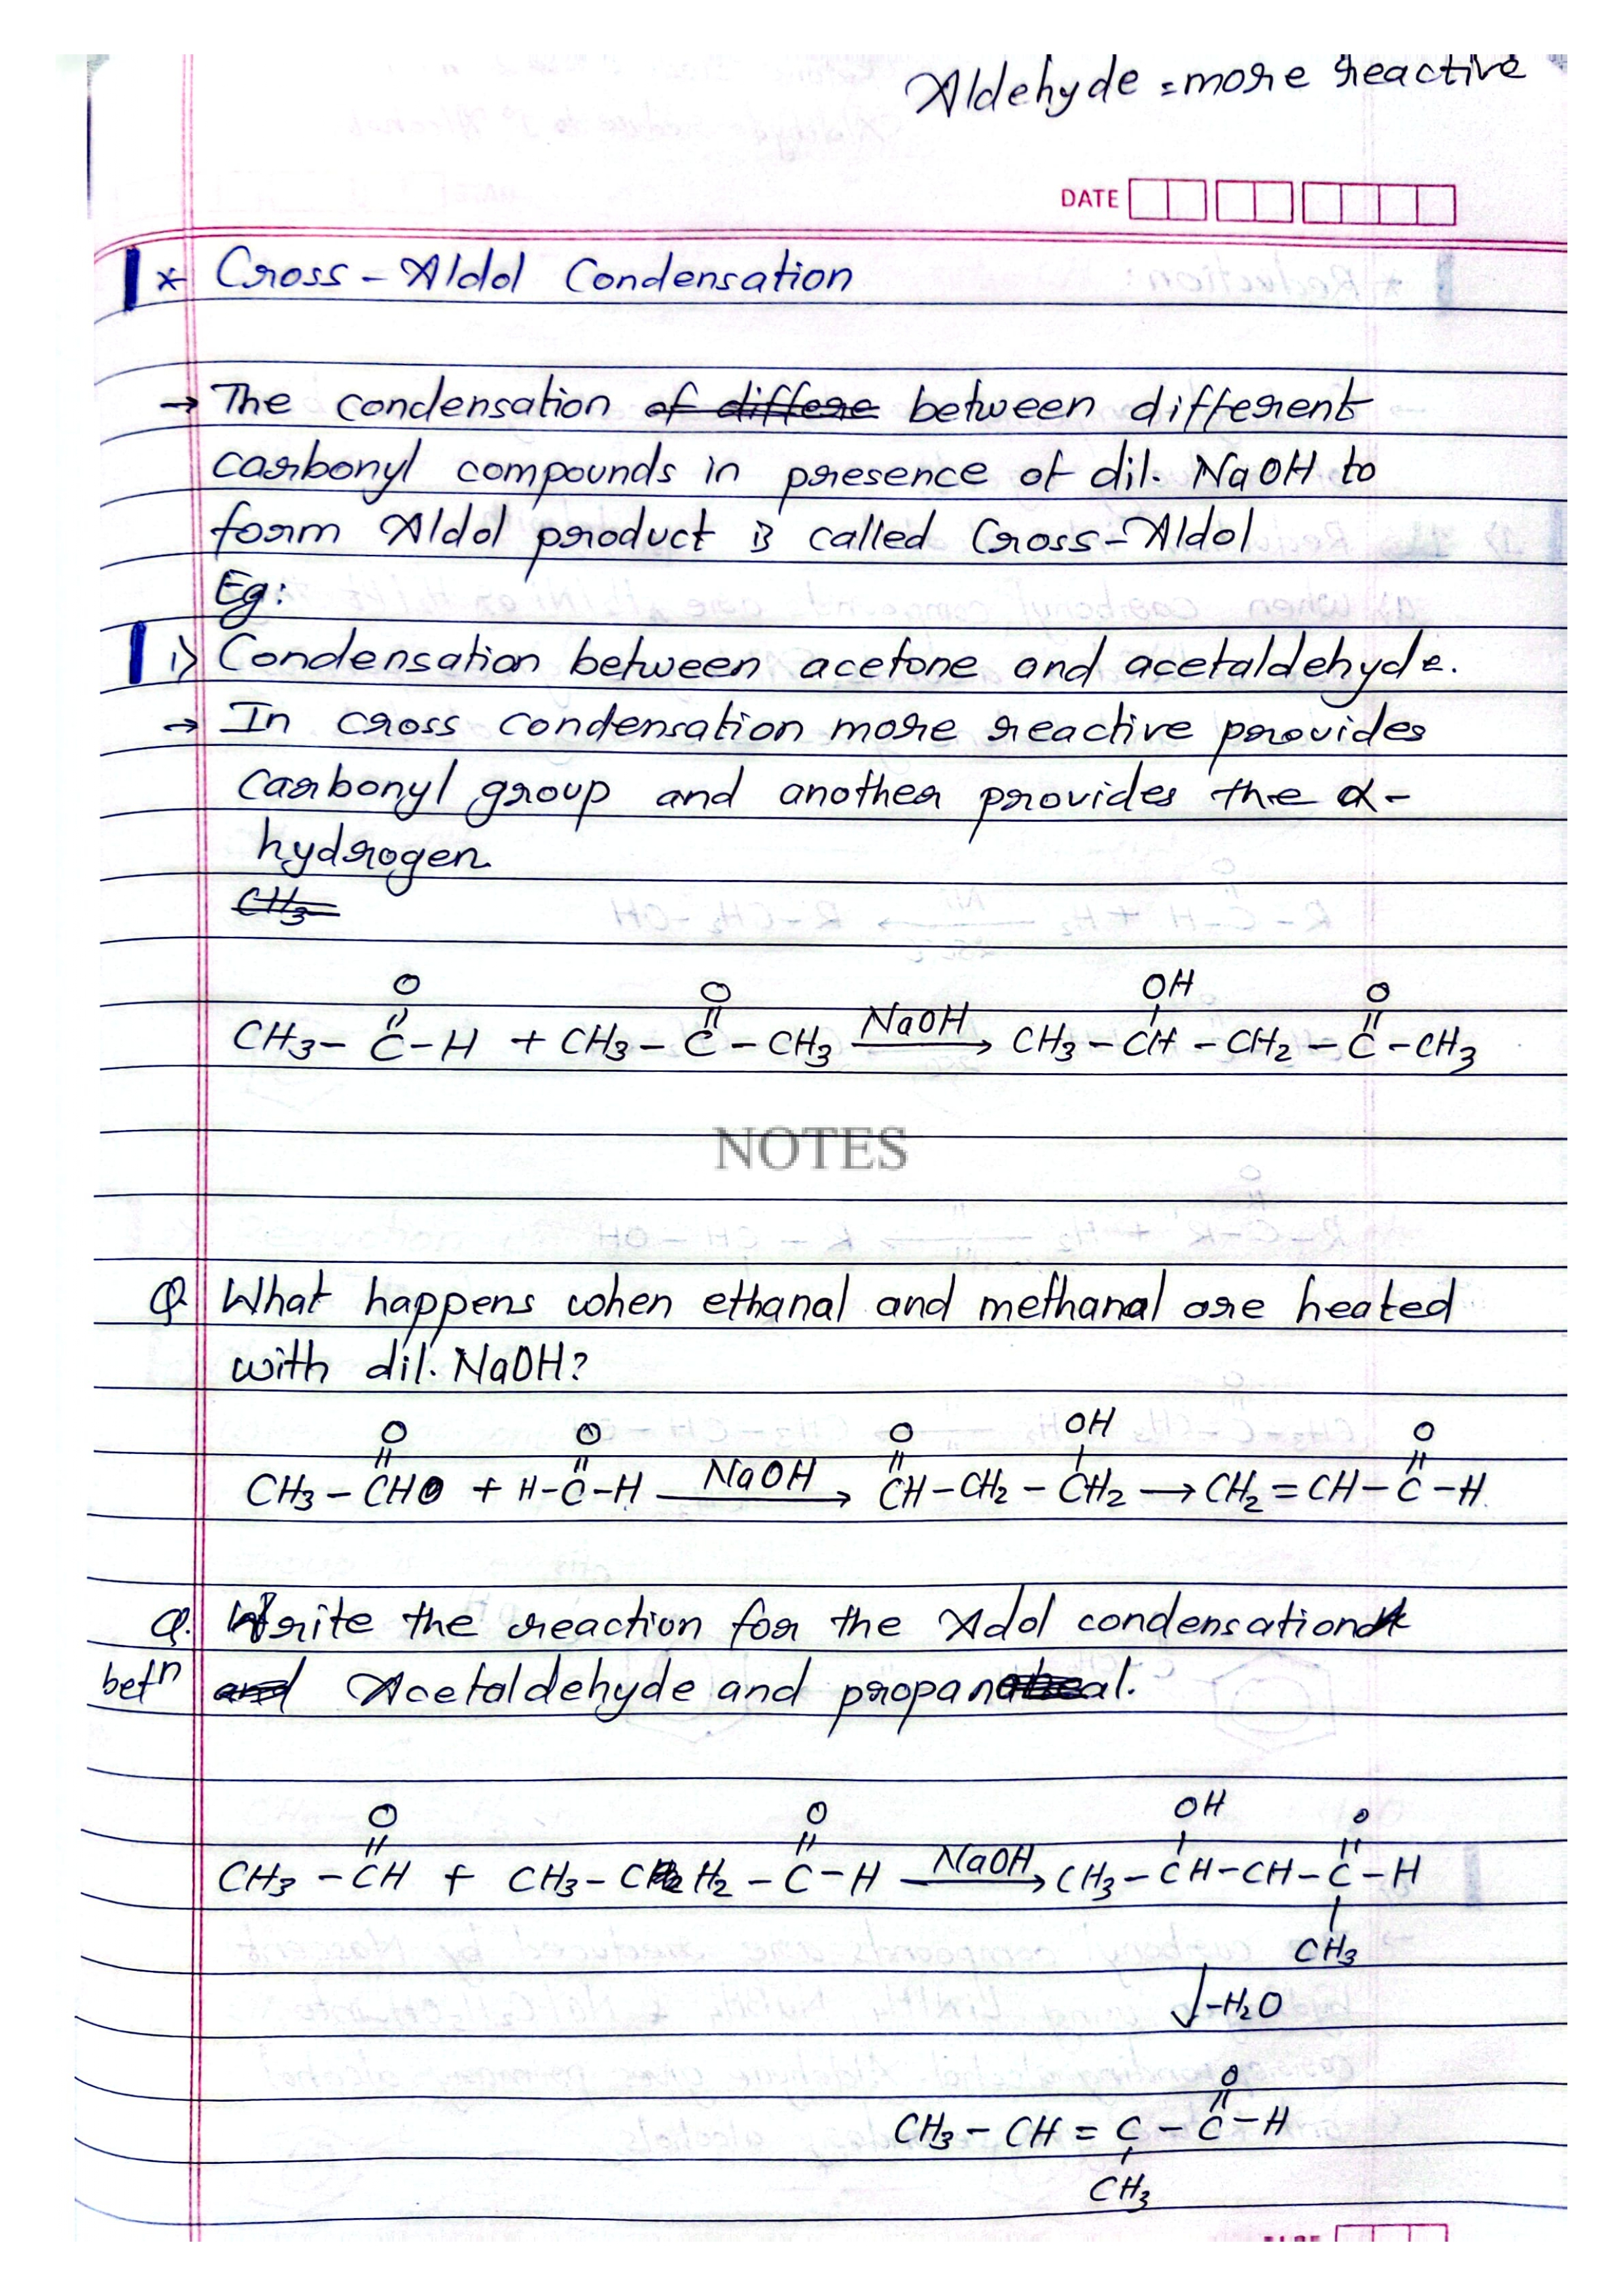 Aldehyde = more reactive
DATE
* Cross-Aldol Condensation
→ The condensation of differe between different
carbonyl compounds in presence of dil. NaOH to
form Aldol product is called Cross-Aldol
Eg:
i) Condensation between acetone and acetaldehyde.
→ In cross condensation more reactive provides
carbonyl group and another provides the α-
hydrogen.
CH₃
O O OH O
CH₃ - C - H + CH₃ - C - CH₃ NaOH → CH₃ - CH - CH₂ - C - CH₃
NOTES
Q. What happens when ethanal and methanal are heated
with dil. NaOH?
O O O OH O
CH₃ - CHO + H - C - H NaOH → CH - CH₂ - CH₂ → CH₂ = CH - C - H
Q. Write the reaction for the Addol condensation
betⁿ and Acetaldehyde and propanal.
O O OH O
CH₃ - CH + CH₃ - CH₂ - C - H NaOH → CH₃ - CH - CH - C - H
CH₃
↓ -H₂O
O
CH₃ - CH = C - C - H
CH₃